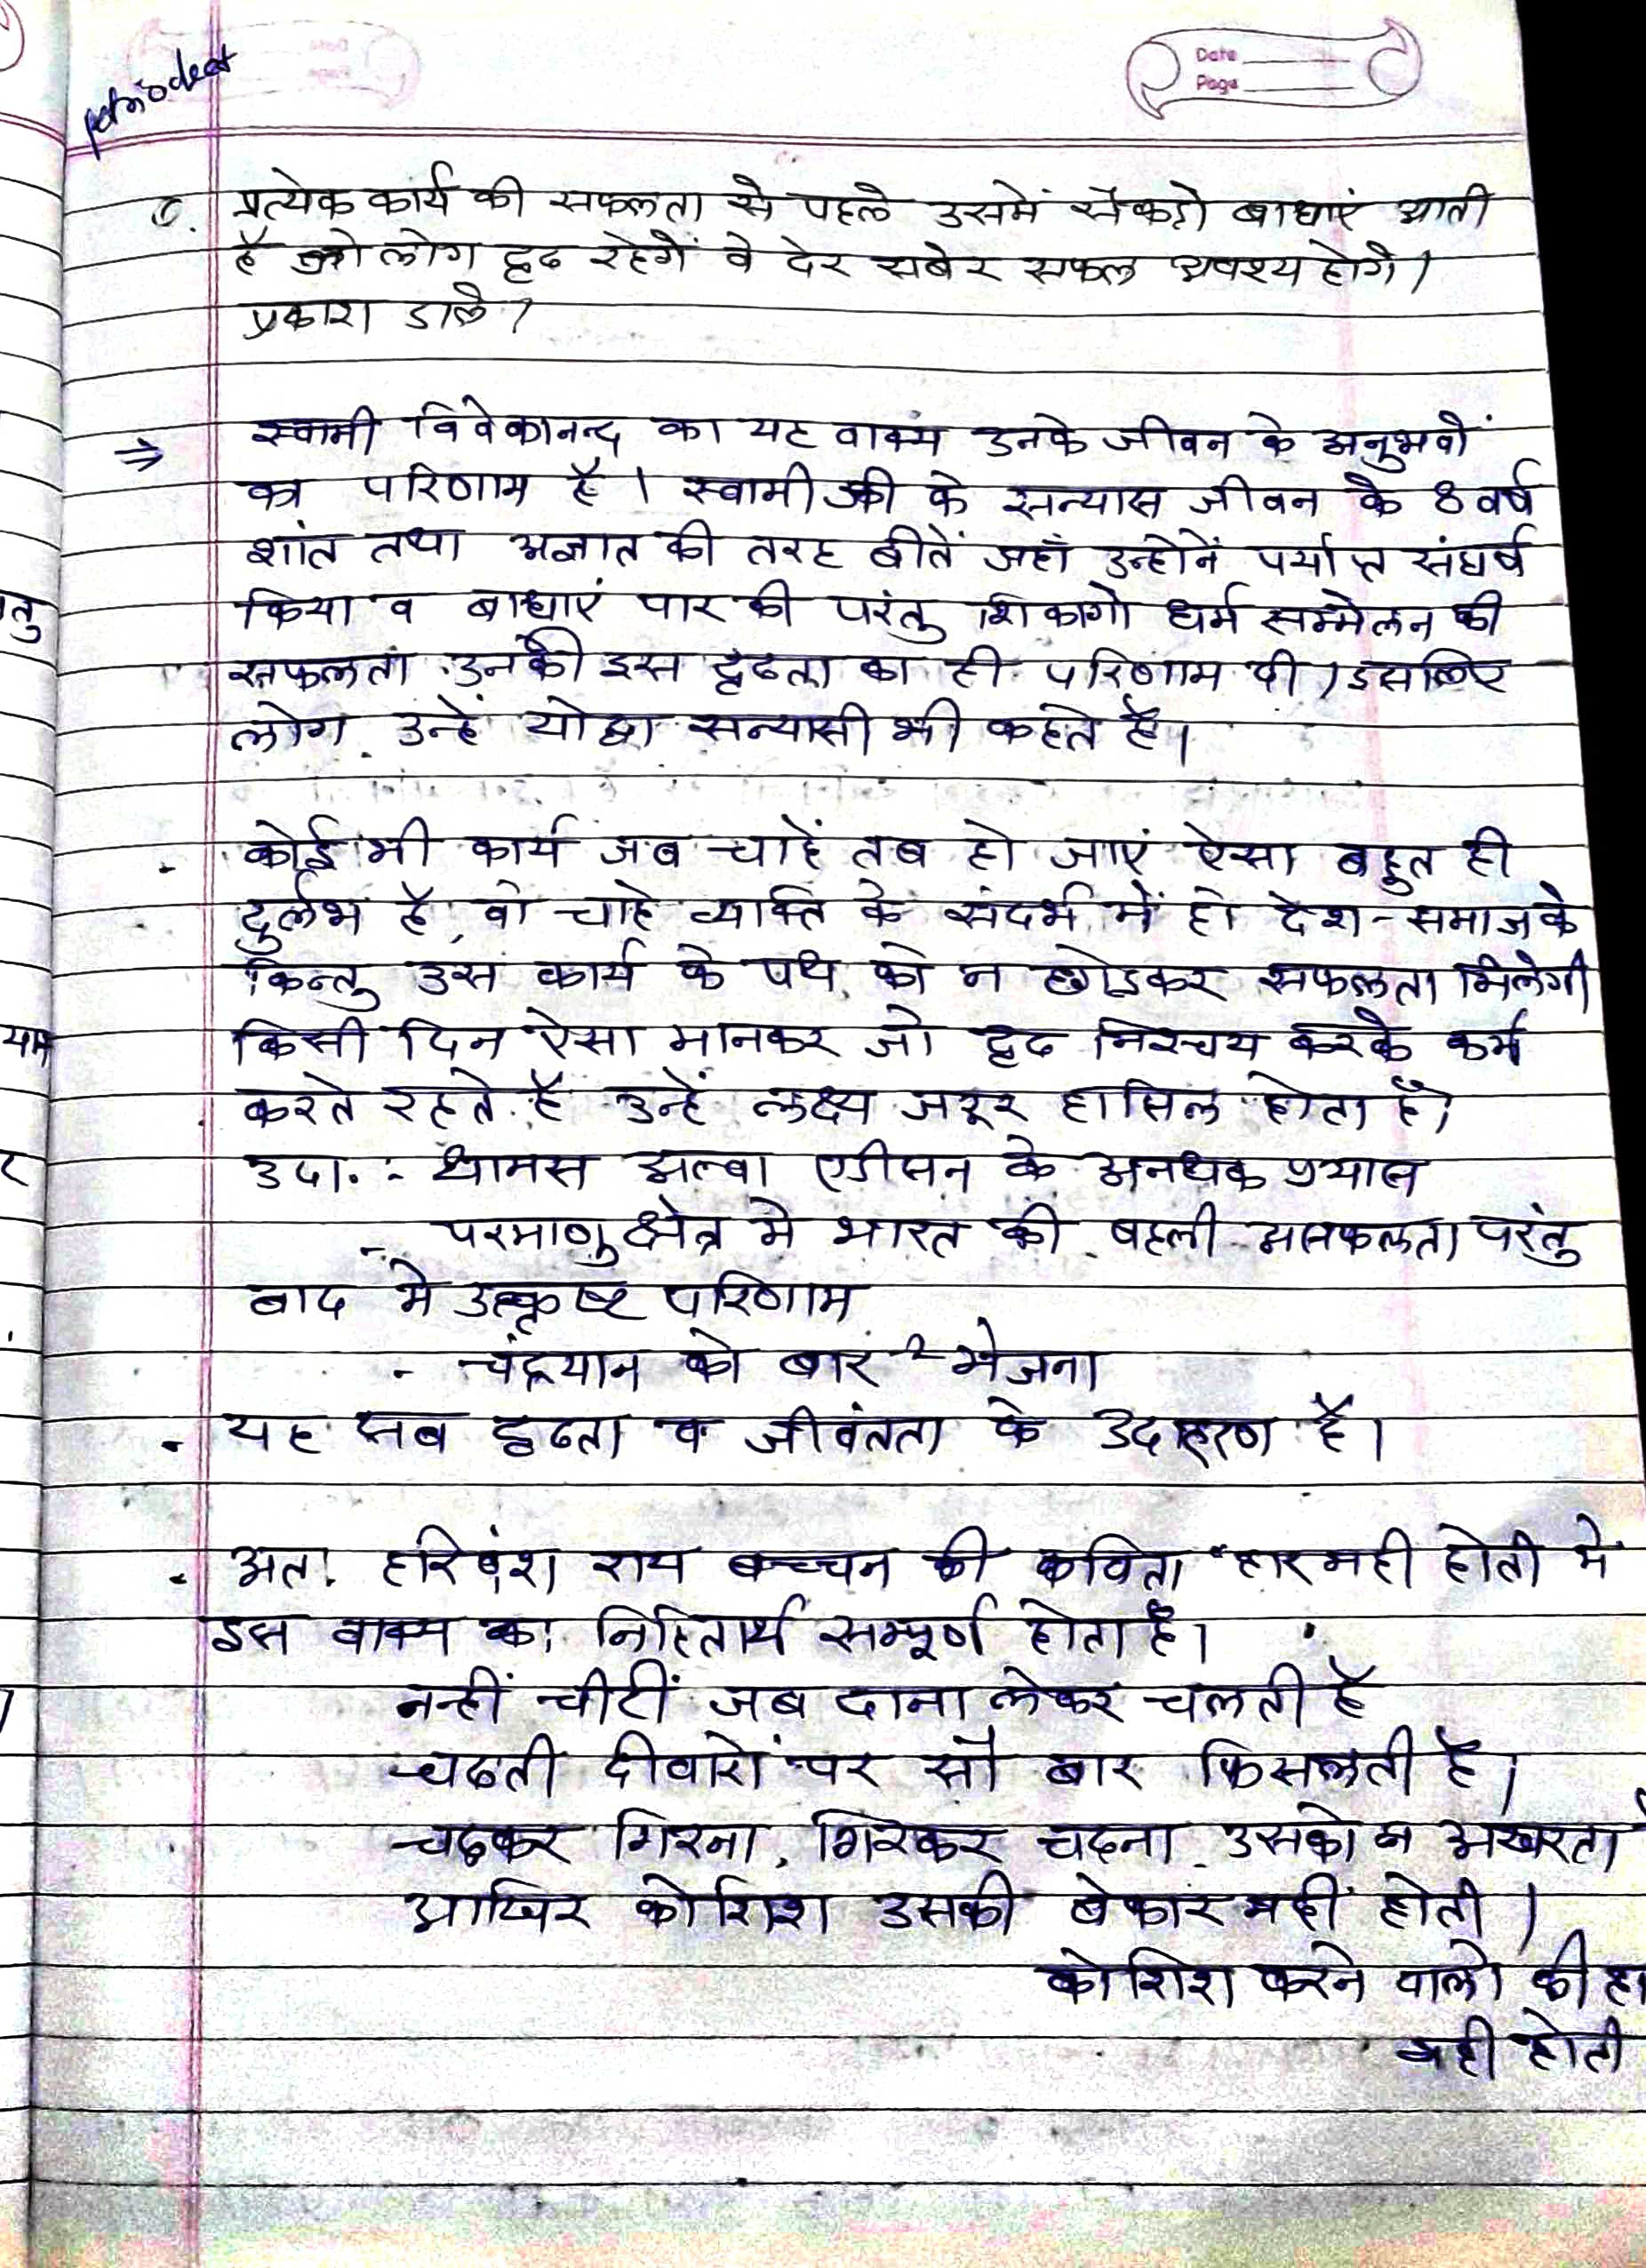 Date
Page
c. प्रत्येक कार्य की सफलता से पहले उसमें सैकडो बाधाएं आती
है जो लोग दृढ रहेगें वे देर सबेर सफल अवश्य होगे।
प्रकाश डाले।
⇒ स्वामी विवेकानन्द का यह वाक्य उनके जीवन के अनुभवों
का परिणाम है। स्वामी जी के सन्यास जीवन के 8 वर्ष
शांत तथा अज्ञात की तरह बीतें जहाँ उन्होनें पर्याप्त संघर्ष
किया व बाधाएं पार की परंतु शिकागो धर्म सम्मेलन की
सफलता उनकी इस दृढता का ही परिणाम थी। इसलिए
लोग उन्हें योद्धा सन्यासी भी कहते है।
. कोई भी कार्य जब चाहें तब हो जाएं ऐसा बहुत ही
दुर्लभ है, वो चाहे व्यक्ति के संदर्भ में हो देश-समाज के
किन्तु उस कार्य के पथ को न छोडकर सफलता मिलेगी
किसी दिन ऐसा मानकर जो दृढ निश्चय करके कर्म
करते रहते है उन्हें लक्ष्य जरूर हासिल होता है।
उदा. :- थामस अल्वा एडीसन के अनथक प्रयास
- परमाणु क्षेत्र मे भारत की पहली असफलता परंतु
बाद मे उत्कृष्ट परिणाम
- चंद्रयान को बार २ भेजना
. यह सब दृढता व जीवंतता के उदाहरण है।
. अत. हरिवंश राय बच्चन की कविता "हार नही होती मे
इस वाक्य का निहितार्थ सम्पूर्ण होता है।
नन्हीं चीटीं जब दाना लेकर चलती है
चढती दीवारों पर सौ बार फिसलती है।
चढकर गिरना, गिरकर चढना उसको न अखरता
आखिर कोशिश उसकी बेकार नहीं होती।
कोशिश करने वालो की
नही होती